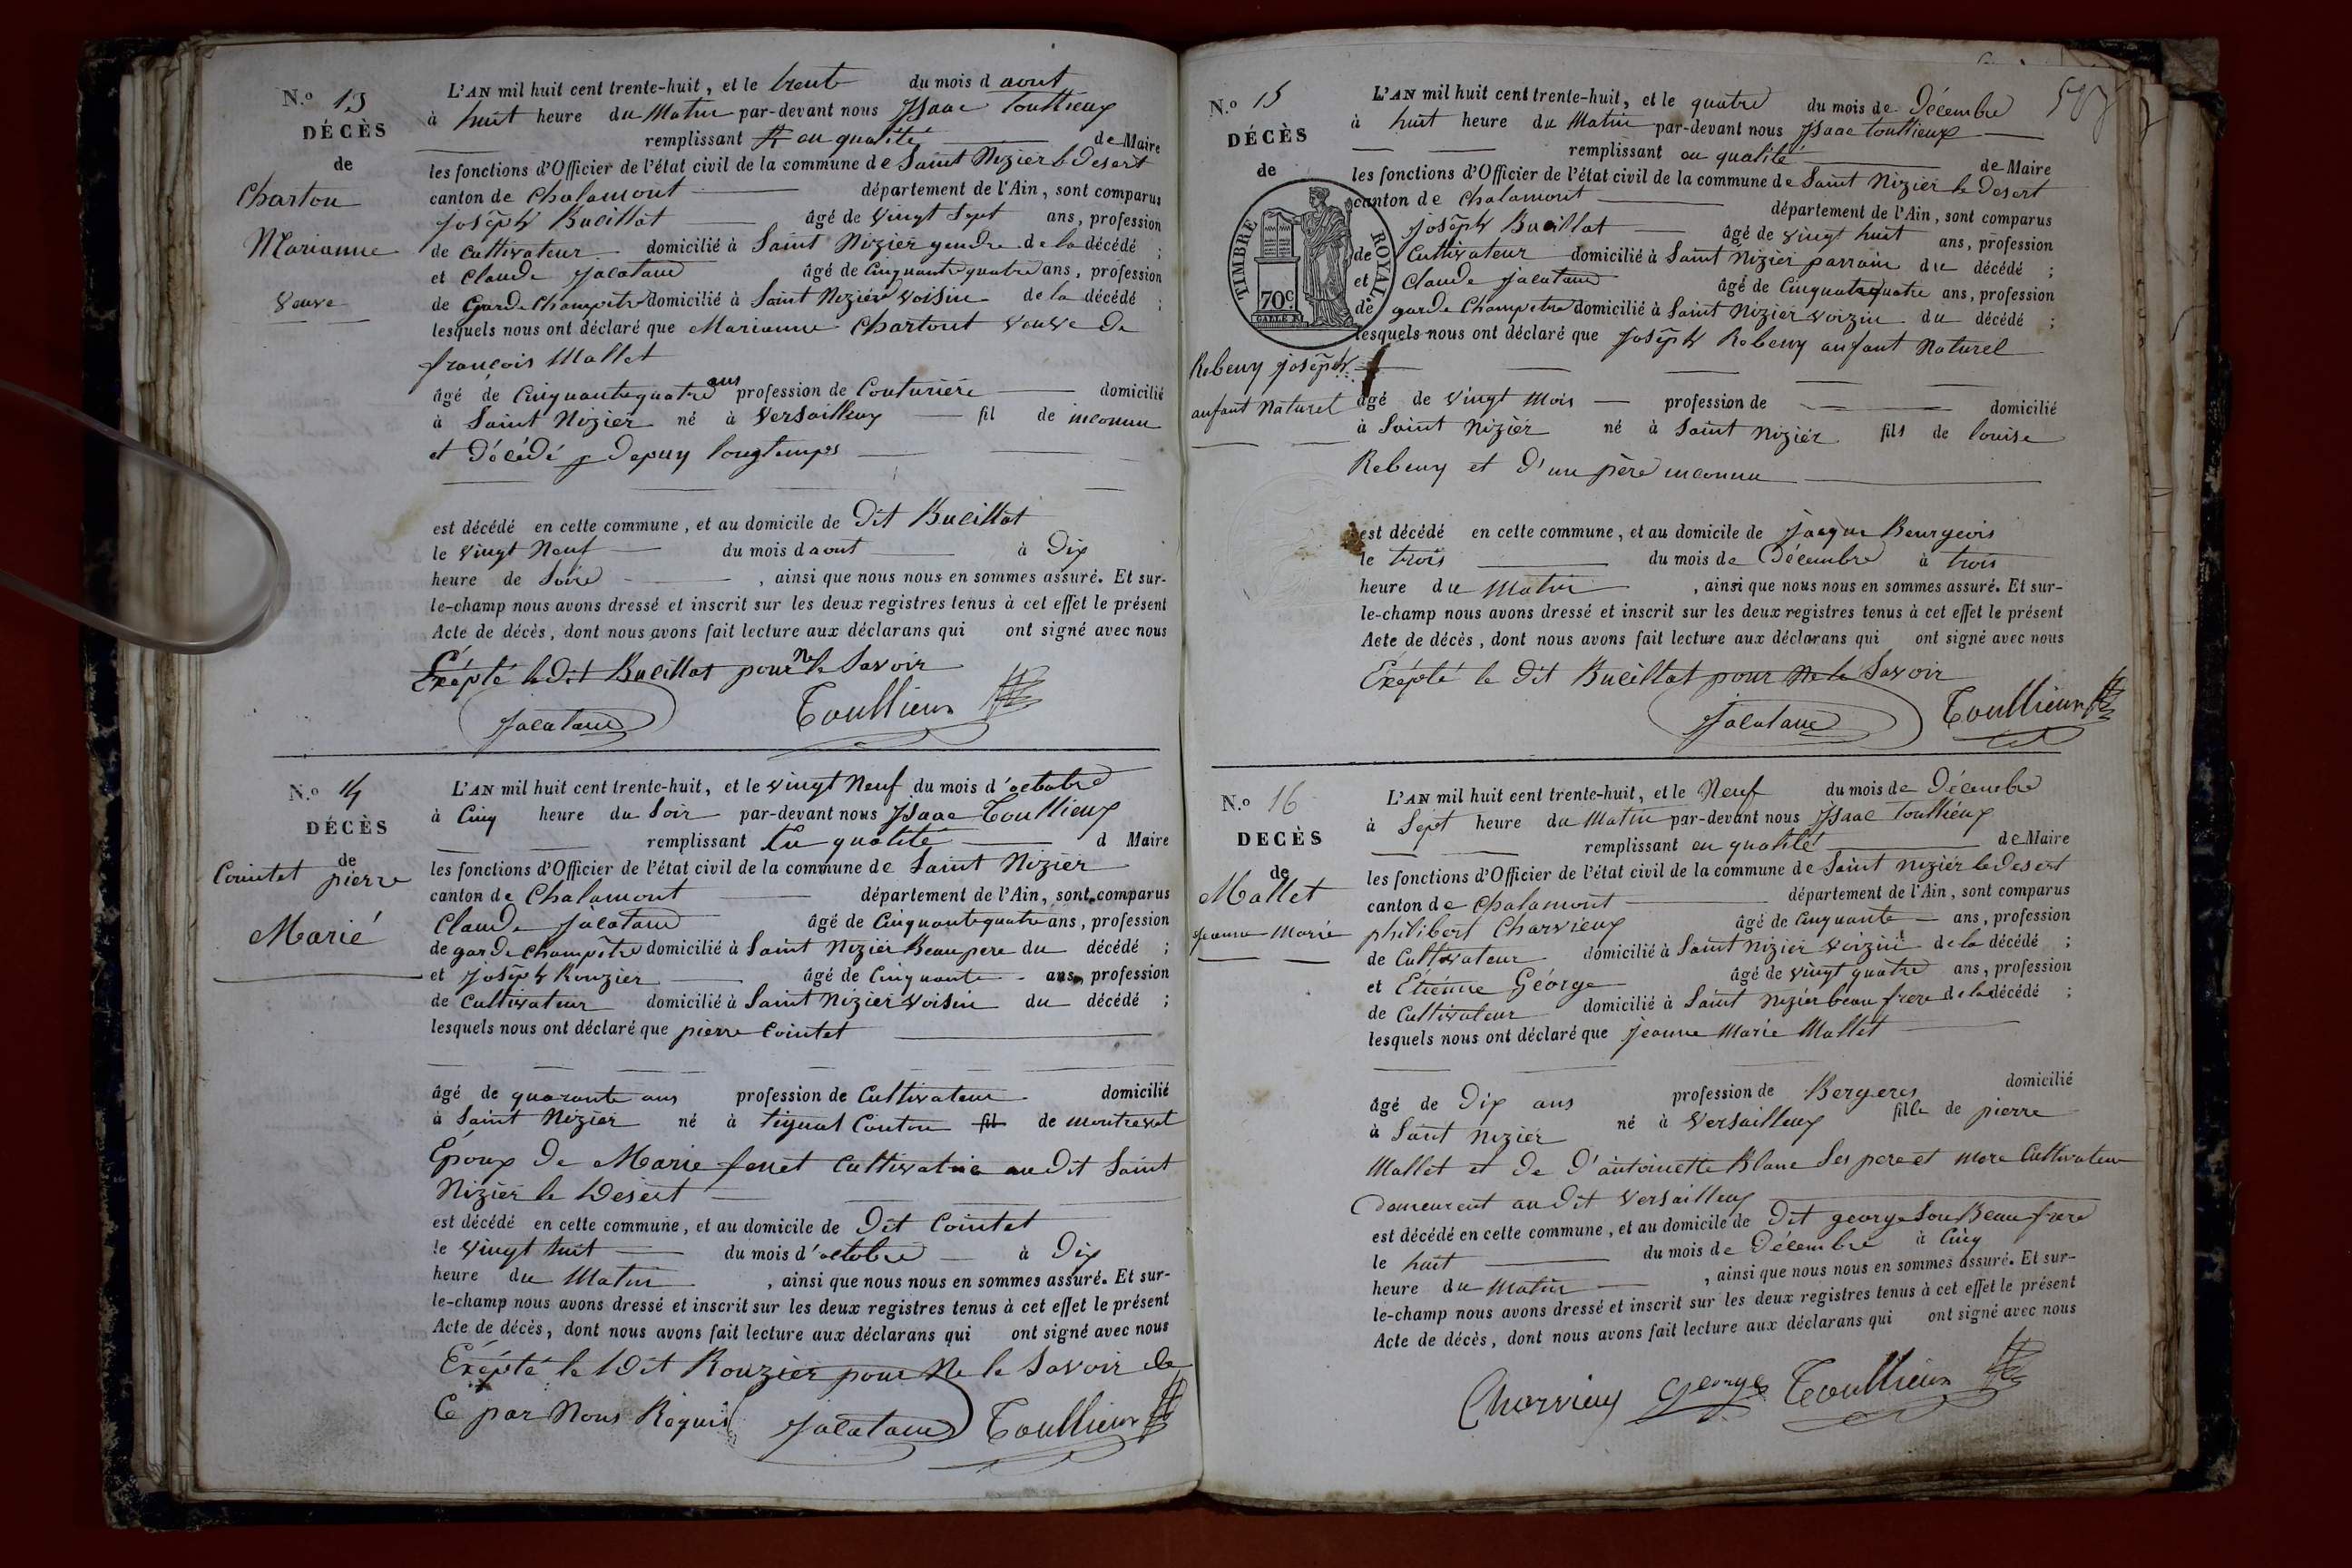 N.o 13
DÉCÈS
de
Charton
Marianne
veuve
L'AN mil huit cent trente-huit, et le trente du mois d aout
à huit heure du Matin par-devant nous Isaac Toullieux
remplissant en qualité de Maire
les fonctions d'Officier de l'état civil de la commune de Saint Nizier le Desert
canton de Chalamont département de l'Ain, sont comparus
Joseph Bucillat âgé de vingt sept ans, profession
de cultivateur domicilié à Saint Nizier gendre de la décédé ;
et Claude Jacataud âgé de Cinquantequatre ans, profession
de Garde Champetre domicilié à Saint Nizier voisin de la décédé ;
lesquels nous ont déclaré que Marianne Chartont veuve de
françois Mallet
âgé de Cinquantequatre ans profession de Couturière domicilié
à Saint Nizier né à Versailleux fil de inconnu
et Décédé depuy longtemps
est décédé en cette commune, et au domicile de Dit Bucillat
le vingt Neuf du mois d aout à Dix
heure de Soire , ainsi que nous nous en sommes assuré. Et sur-
le-champ nous avons dressé et inscrit sur les deux registres tenus à cet effet le présent
Acte de décès, dont nous avons fait lecture aux déclarans qui ont signé avec nous
Exépté le Dit Bucillat pour ne le Savoir
Jacataud Toullieux
N.o 14
DÉCÈS
de
Cointet pierre
Marié
L'AN mil huit cent trente-huit, et le vingt Neuf du mois d'octobre
à Cinq heure du Soir par-devant nous Isaac Toullieux
remplissant En qualité d Maire
les fonctions d'Officier de l'état civil de la commune de Saint Nizier
canton de Chalamont département de l'Ain, sont comparus
Claude Jacataud âgé de Cinquantequatre ans, profession
de garde Champêtre domicilié à Saint Nizier Beaupere du décédé ;
et Joseph Rouzier âgé de Cinquante ans, profession
de Cultivateur domicilié à Saint Nizier voisin du décédé ;
lesquels nous ont déclaré que pierre Cointet
âgé de quarante ans profession de Cultivateur domicilié
à Saint Nizier né à tignat Conton fil de montrevat
Époux De Marie fenet Cultivatrice au Dit Saint
Nizier le Desert
est décédé en cette commune, et au domicile de Dit Cointet
le vingt huit du mois d'octobre à Dix
heure du Matin , ainsi que nous nous en sommes assuré. Et sur-
le-champ nous avons dressé et inscrit sur les deux registres tenus à cet effet le présent
Acte de décès, dont nous avons fait lecture aux déclarans qui ont signé avec nous
Exépté le Dit Rouzier pour Ne le Savoir de
Ce par Nous Requis Jacataud Toullieux
N.o 15
DÉCÈS
de
TIMBRE ROYAL
70c
Rebeuy joseph
anfant Naturel
L'AN mil huit cent trente-huit, et le quatre du mois de Décembre
à huit heure du Matin par-devant nous Isaac Toullieux
remplissant en qualité de Maire
les fonctions d'Officier de l'état civil de la commune de Saint Nizier le Desert
canton de Chalamont département de l'Ain, sont comparus
Joseph Bucillat âgé de vingt huit ans, profession
de Cultivateur domicilié à Saint Nizier parrain du décédé ;
et Claude Jacataud âgé de Cinquantequatre ans, profession
de garde Champetre domicilié à Saint Nizier voizin du décédé ;
lesquels nous ont déclaré que Joseph Rebeuy anfant Naturel
âgé de vingt Mois profession de domicilié
à Saint Nizier né à Saint Nizier fils de louise
Rebeuy et D'un père inconnu
est décédé en cette commune, et au domicile de Jacque Beurgeois
le trois du mois de Décembre à trois
heure du Matin , ainsi que nous nous en sommes assuré. Et sur-
le-champ nous avons dressé et inscrit sur les deux registres tenus à cet effet le présent
Acte de décès, dont nous avons fait lecture aux déclarans qui ont signé avec nous
Exépté le Dit Bucillat pour Ne le Savoir
Jacataud Toullieux
N.o 16
DECÈS
de
Mallet
Jeanne Marie
L'AN mil huit cent trente-huit, et le Neuf du mois de Décembre
à Sept heure du Matin par-devant nous Isaac Toullieux
remplissant en qualité de Maire
les fonctions d'Officier de l'état civil de la commune de Saint Nizier le Desert
canton de Chalamont département de l'Ain, sont comparus
philibert Charvieux âgé de Cinquante ans, profession
de Cultivateur domicilié à Saint Nizier voizin de la décédé ;
et Étiénne Géorge âgé de vingt quatre ans, profession
de Cultivateur domicilié à Saint Nizier beau frere de la décédé ;
lesquels nous ont déclaré que Jeanne Marie Mallet
âgé de Dix ans profession de Bergeres domicilié
à Saint Nizier né à Versailleux fille de pierre
Mallet et de D'antoinette Blanc Ses pere et mere Cultivateur
Demeurent au Dit Versailleux
est décédé en cette commune, et au domicile de Dit george Son Beau frere
le huit du mois de Décembre à Cinq
heure du Matin , ainsi que nous nous en sommes assuré. Et sur-
le-champ nous avons dressé et inscrit sur les deux registres tenus à cet effet le présent
Acte de décès, dont nous avons fait lecture aux déclarans qui ont signé avec nous
Charvieux George Toullieux